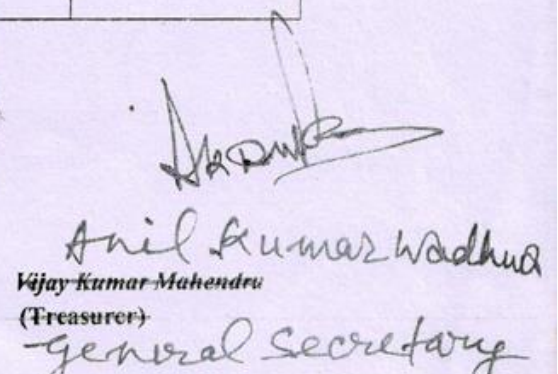 Anil Kumar Wadhwa
Vijay Kumar Mahendru
(Treasurer)
General Secretary